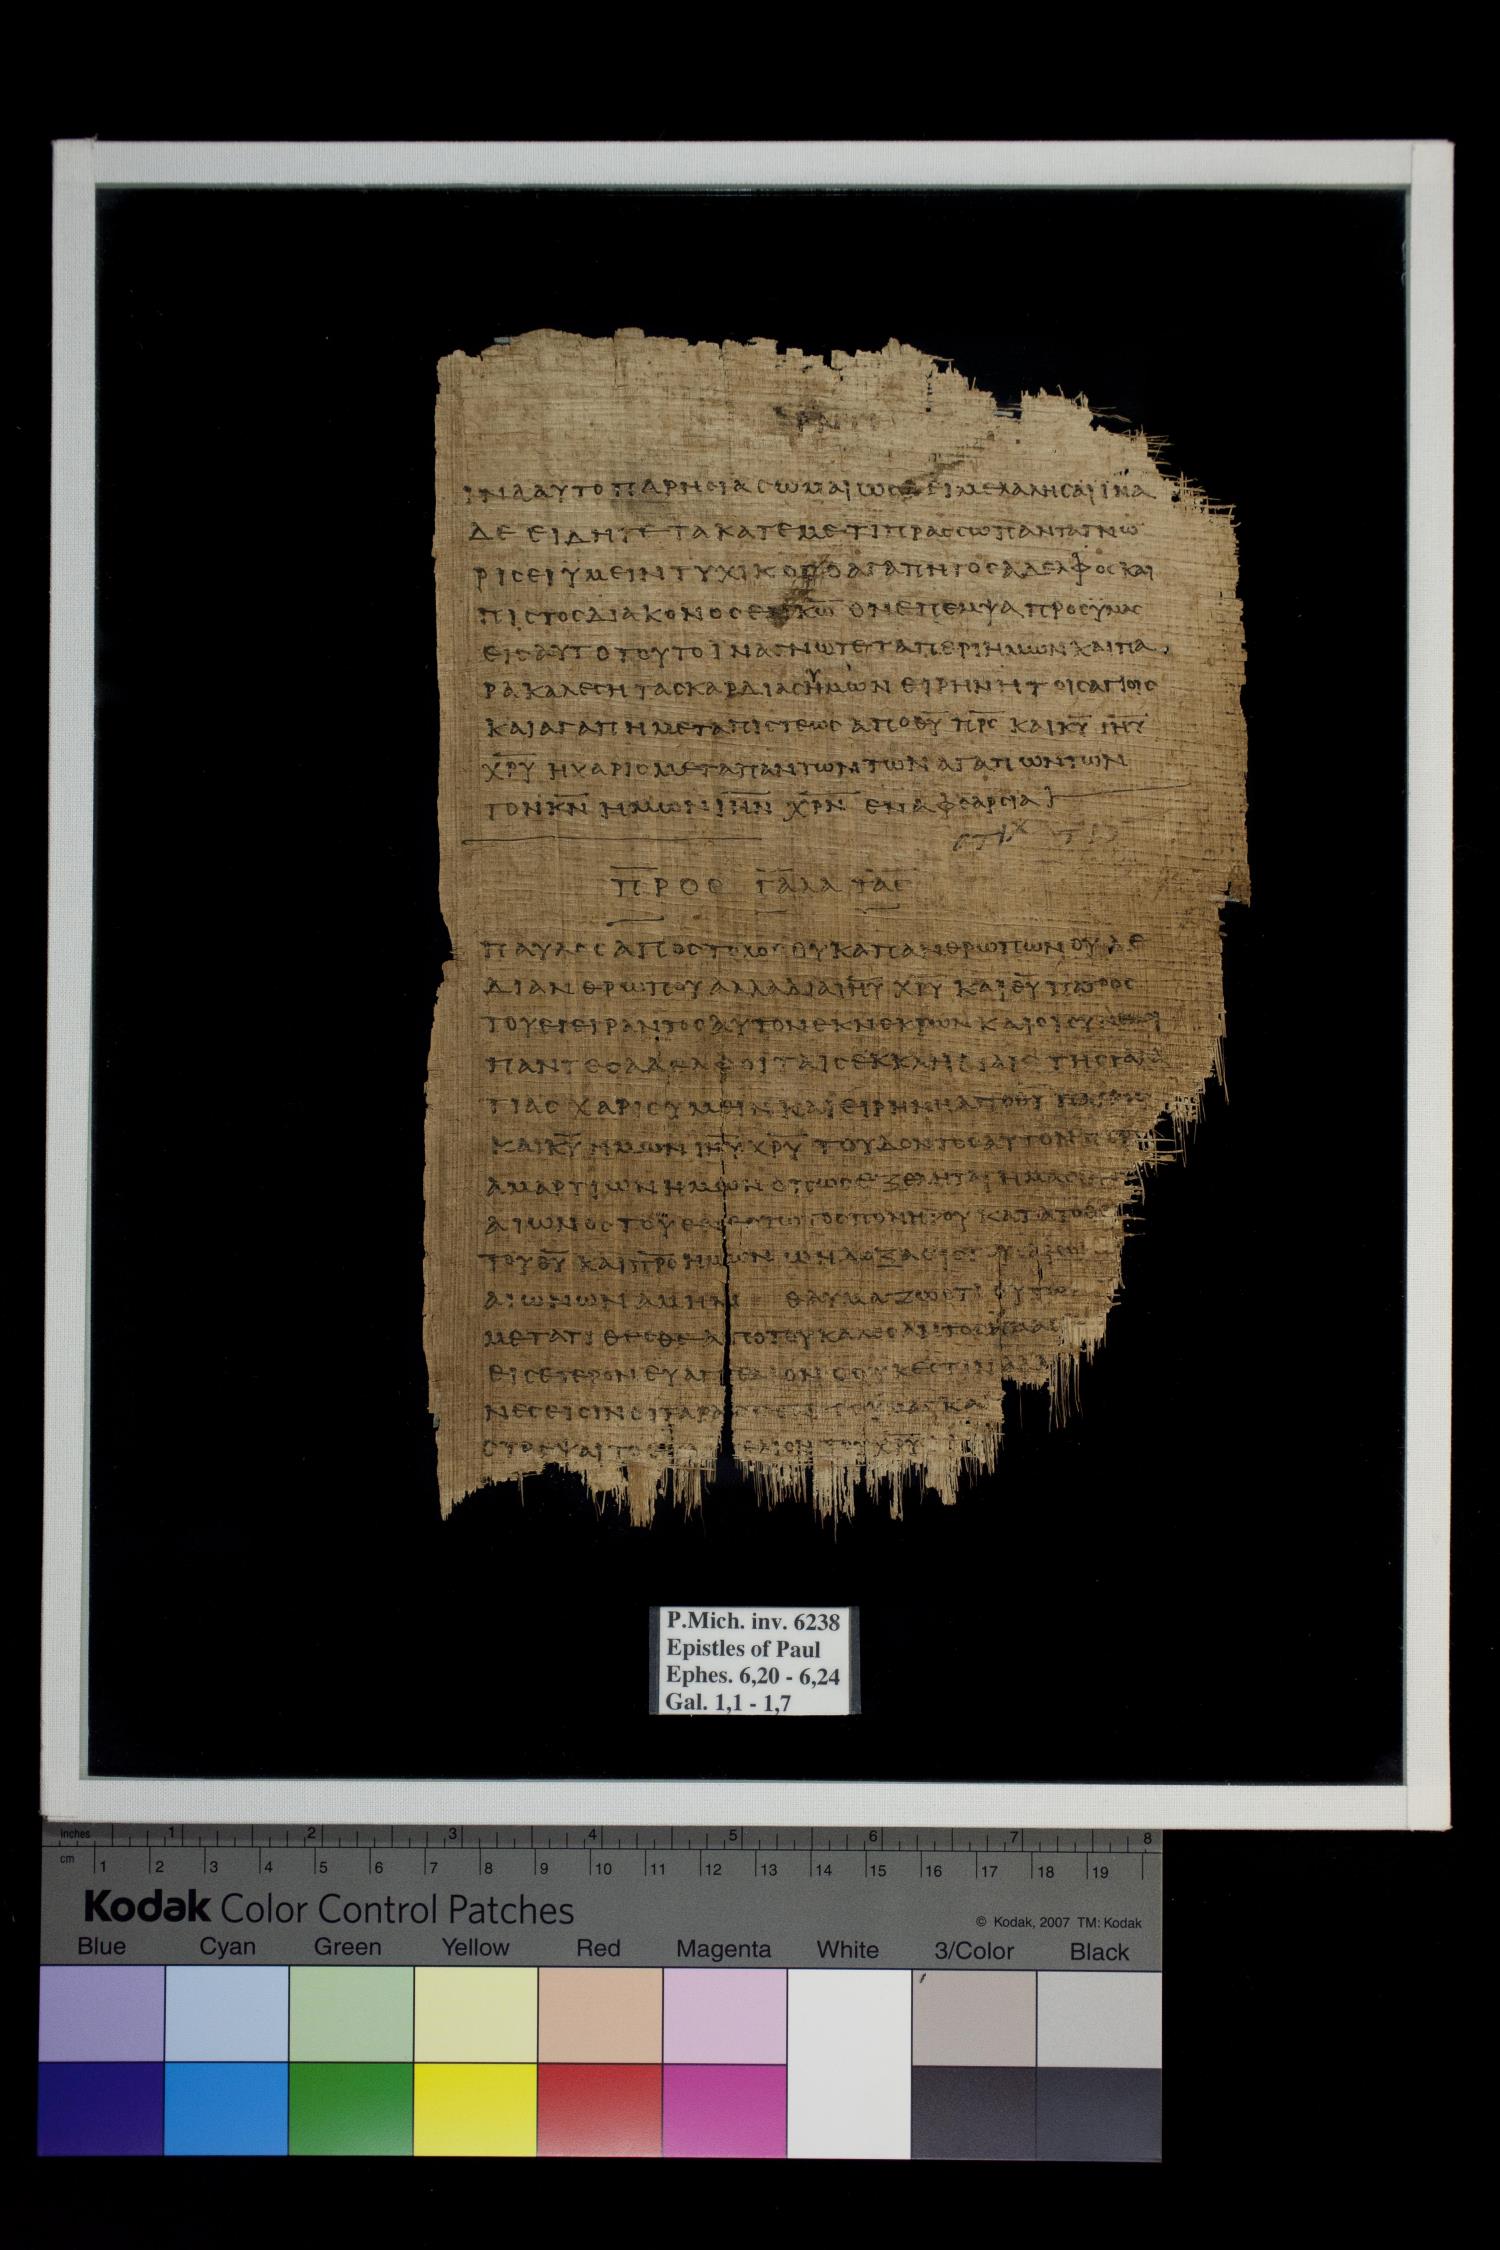 ΙΝΑ ΑΥΤΟ ΠΑΡΗCΙΑCΩΜΑΙ ΩC ΔΕΙ ΜΕ ΛΑΛΗCΑΙ ΙΝΑ
ΔΕ ΕΙΔΗΤΕ ΤΑ ΚΑΤ ΕΜΕ ΤΙ ΠΡΑCCΩ ΠΑΝΤΑ ΓΝΩ
ΡΙCΕΙ ΫΜΕΙΝ ΤΥΧΙΚΟC Ο ΑΓΑΠΗΤΟC ΑΔΕΛΦΟC ΚΑΙ
ΠΙCΤΟC ΔΙΑΚΟΝΟC ΕΝ Κ̅Ω̅ ΟΝ ΕΠΕΜΨΑ ΠΡΟC ΥΜΑC
ΕΙC ΑΥΤΟ ΤΟΥΤΟ ΙΝΑ ΓΝΩΤΕ ΤΑ ΠΕΡΙ ΗΜΩΝ ΚΑΙ ΠΑ
ΡΑΚΑΛΕCΗ ΤΑC ΚΑΡΔΙΑC ΗΜΩΝ ΕΙΡΗΝΗ ΤΟΙC ΑΓΙΟΙC
ΚΑΙ ΑΓΑΠΗ ΜΕΤΑ ΠΙCΤΕΩC ΑΠΟ Θ̅Υ̅ Π̅Ρ̅C̅ ΚΑΙ Κ̅Υ̅ Ι̅Η̅Υ̅
Χ̅Ρ̅Υ̅ Η ΧΑΡΙC ΜΕΤΑ ΠΑΝΤΩΝ ΤΩΝ ΑΓΑΠΩΝΤΩΝ
ΤΟΝ Κ̅Ν̅ ΗΜΩΝ Ι̅Η̅Ν̅ Χ̅Ρ̅Ν̅ ΕΝ ΑΦΘΑΡCΙΑ
CΤΙΧ
ΠΡΟC ΓΑΛΑΤΑC
ΠΑΥΛΟC ΑΠΟCΤΟΛΟC ΟΥΚ ΑΠ ΑΝΘΡΩΠΩΝ ΟΥΔΕ
ΔΙ ΑΝΘΡΩΠΟΥ ΑΛΛΑ ΔΙΑ Ι̅Η̅Υ̅ Χ̅Ρ̅Υ̅ ΚΑΙ Θ̅Υ̅ ΠΑΤΡΟC
ΤΟΥ ΕΓΕΙΡΑΝΤΟC ΑΥΤΟΝ ΕΚ ΝΕΚΡΩΝ ΚΑΙ ΟΙ CΥΝ
ΠΑΝΤΕC ΑΔΕΛΦΟΙ ΤΑΙC ΕΚΚΛΗCΙΑΙC ΤΗC ΓΑΛΑ
ΤΙΑC ΧΑΡΙC ΥΜΕΙΝ ΚΑΙ ΕΙΡΗΝΗ ΑΠΟ Θ̅Υ̅ ΠΑΤΡΟC
ΚΑΙ Κ̅Υ̅ ΗΜΩΝ Ι̅Η̅Υ̅ Χ̅Ρ̅Υ̅ ΤΟΥ ΔΟΝΤΟC ΑΥΤΟΝ ΠΕΡΙ
ΑΜΑΡΤΙΩΝ ΗΜΩΝ ΟΠΩC ΕΞΕΛΗΤΑΙ ΗΜΑC
ΑΙΩΝΟC ΤΟΥ ΕΝΕCΤΩΤΟC ΠΟΝΗΡΟΥ ΚΑΤΑ ΤΟ ΘΕ
ΤΟΥ Θ̅Υ̅ ΚΑΙ Π̅Ρ̅C̅ ΗΜΩΝ Ω Η ΔΟΞΑ ΕΙC
ΑΙΩΝΩΝ ΑΜΗΝ ΘΑΥΜΑΖΩ ΟΤΙ ΟΥΤΩC
ΜΕΤΑΤΙΘΕCΘΕ ΑΠΟ ΤΟΥ ΚΑΛΕCΑΝΤΟC ΥΜΑC
ΕΙC ΕΤΕΡΟΝ ΕΥΑΓΓΕΛΙΟΝ Ο ΟΥΚ ΕCΤΙΝ ΑΛΛ
ΝΕC ΕΙCΙΝ ΟΙ ΤΑΡΑCCΟΝΤΕC ΥΜΑC ΚΑΙ
CΤΡΕΨΑΙ ΤΟ ΕΥΑΓΓΕΛΙΟΝ ΤΟΥ Χ̅Ρ̅Υ̅
P.Mich. inv. 6238
Epistles of Paul
Ephes. 6,20 - 6,24
Gal. 1,1 - 1,7
inches 1 2 3 4 5 6 7 8
cm 1 2 3 4 5 6 7 8 9 10 11 12 13 14 15 16 17 18 19
Kodak Color Control Patches
© Kodak, 2007 TM: Kodak
Blue Cyan Green Yellow Red Magenta White 3/Color Black